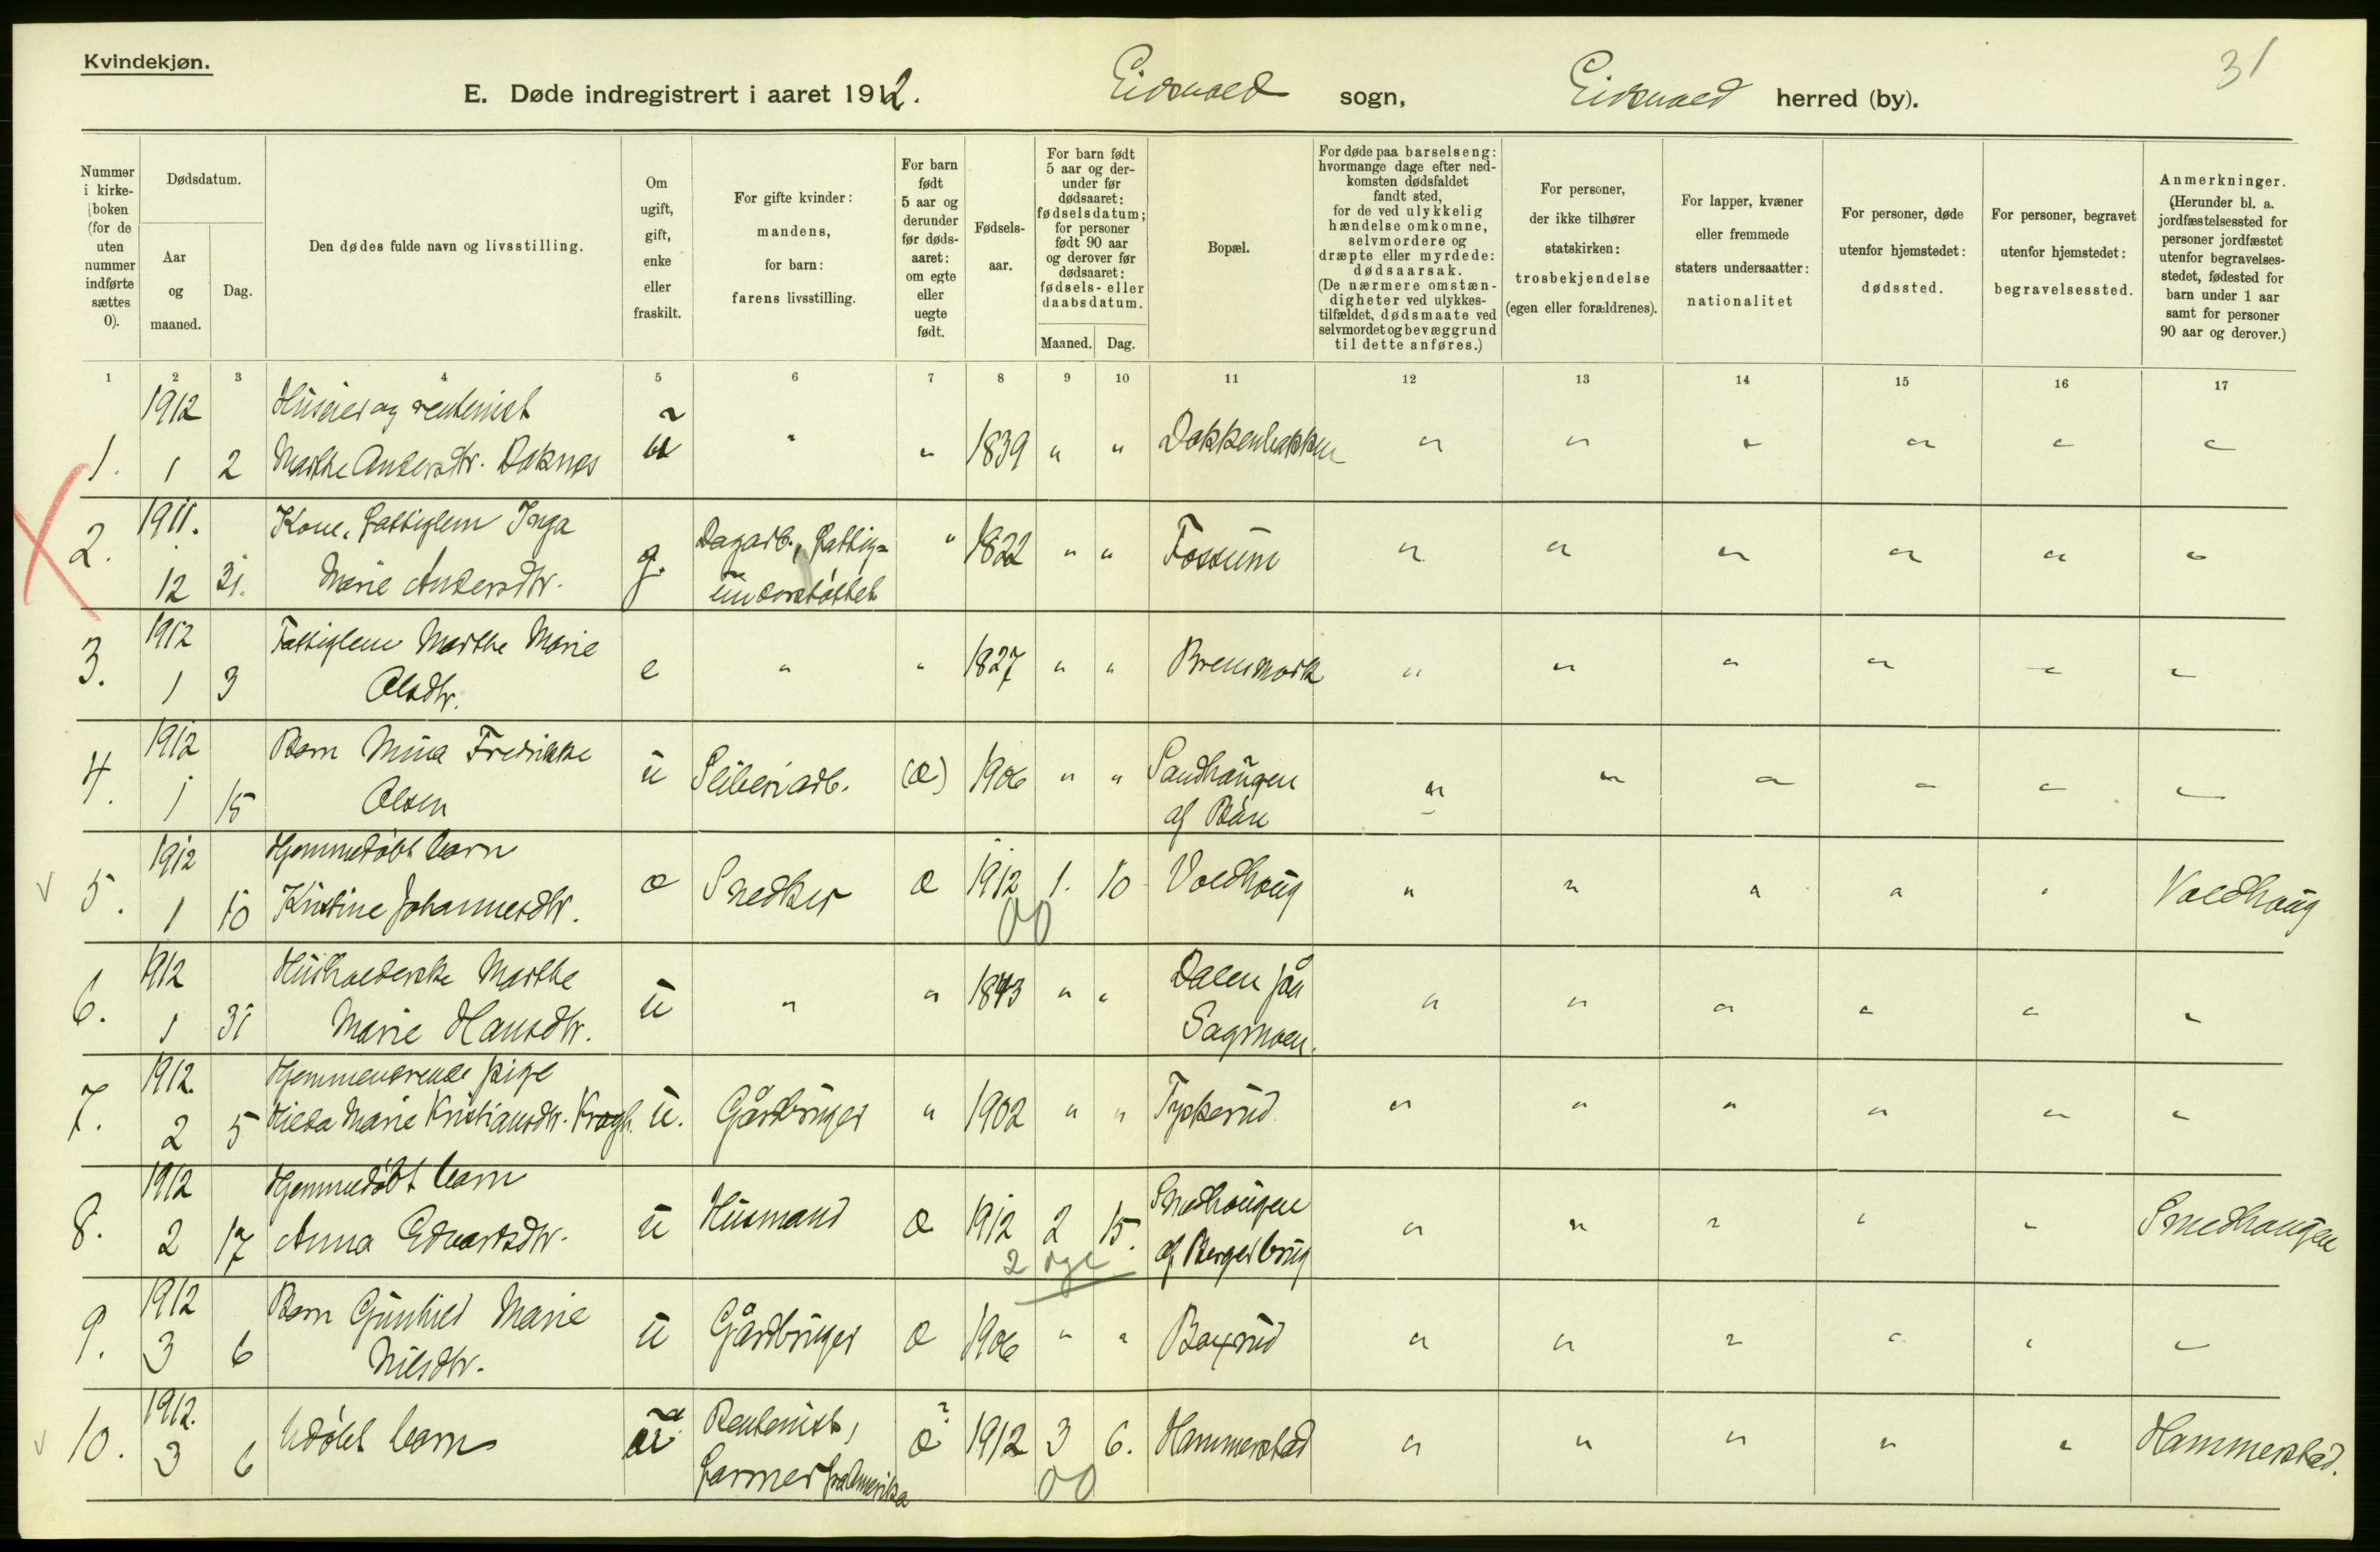 Kvindekjøn.
31
E. Døde indregistrert i aaret 1912. Eidsvold sogn, Eidsvold herred (by).
Nummer i kirkeboken (for de uten nummer indførte sættes 0).
Dødsdatum.
Aar og maaned.
Dag.
Den dødes fulde navn og livsstilling.
Om ugift, gift, enke eller fraskilt.
For gifte kvinder: mandens, for barn: farens livsstilling.
For barn født 5 aar og derunder før dødsaaret: om egte eller uegte født.
Fødselsaar.
For barn født 5 aar og derunder før dødsaaret: fødselsdatum; for personer født 90 aar og derover før dødsaaret: fødsels- eller daabsdatum.
Maaned. Dag.
Bopæl.
For døde paa barselseng: hvormange dage efter nedkomsten dødsfaldet fandt sted, for de ved ulykkelig hændelse omkomne, selvmordere og dræpte eller myrdede: dødsaarsak. (De nærmere omstændigheter ved ulykkestilfældet, dødsmaate ved selvmordet og bevæggrund til dette anføres.)
For personer, der ikke tilhører statskirken: trosbekjendelse (egen eller forældrenes).
For lapper, kvæner eller fremmede staters undersaatter: nationalitet
For personer, døde utenfor hjemstedet: dødssted.
For personer, begravet utenfor hjemstedet: begravelsessted.
Anmerkninger. (Herunder bl. a. jordfæstelsessted for personer jordfæstet utenfor begravelsesstedet, fødested for barn under 1 aar samt for personer 90 aar og derover.)
1 2 3 4 5 6 7 8 9 10 11 12 13 14 15 16 17
1912 Huseier og rentenist
1. 1 2 Marthe Andersdtr. Doknes u " " 1839 " " Dokkenbakken " " " " " "
1911. Kone, fattiglem Inga
2. 12 31. Marie Andersdtr. g. Dagarb., fattig= understøttet " 1822 " " Fossum " " " " " "
1912 Fattiglem Marthe Marie
3. 1 3 Olsdtr. e " " 1827 " " Bremsmork " " " " " "
1912 Barn Mina Fredrikke
4. 1 15 Olsen u Sliberiarb. (æ) 1906 " " Sandhaugen af Bån " " " " " "
1912 Hjemmedøbt barn
5. 1 10 Kristine Johannesdtr. æ Snedker æ 1912 1. 10 Voldhaug " " " " " Voldhaug
00
1912 Husholderske Marthe
6. 1 31 Marie Hansdtr. u " " 1843 " " Dalen på Sagmoen. " " " " " "
1912. Hjemmeværende pige
7. 2 5 Hilda Marie Kristiansdtr. Kragh. u. Gårdbruger " 1902 " " Tykkerud " " " " " "
1912 Hjemmedøbt barn
8. 2 17 Anna Edvardsdtr. u Husmand æ 1912 2 15. Snedhaugen af Bergerbrug " " " " " Snedhaugen
2 dge
1912 Barn Gunhild Marie
9. 3 6 Nilsdtr. u Gårdbruger æ 1906 " " Boxrud " " " " " "
1912. Rentenist,
10. 3 6 Udøbt barn farmer fra Amerika æ 1912 3 6. Hammerstad " " " " " Hammerstad.
00